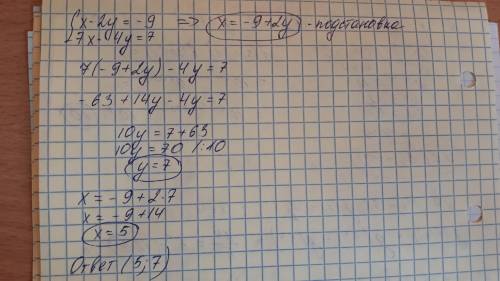 {x-2y = -9 => x = -9+2y - подстановка
{7x-4y=7
7(-9+2y)-4y=7
-63+14y-4y=7
10y = 7+63
10y = 70 /:10
y = 7
x = -9+2·7
x = -9+14
x = 5
Ответ (5; 7)